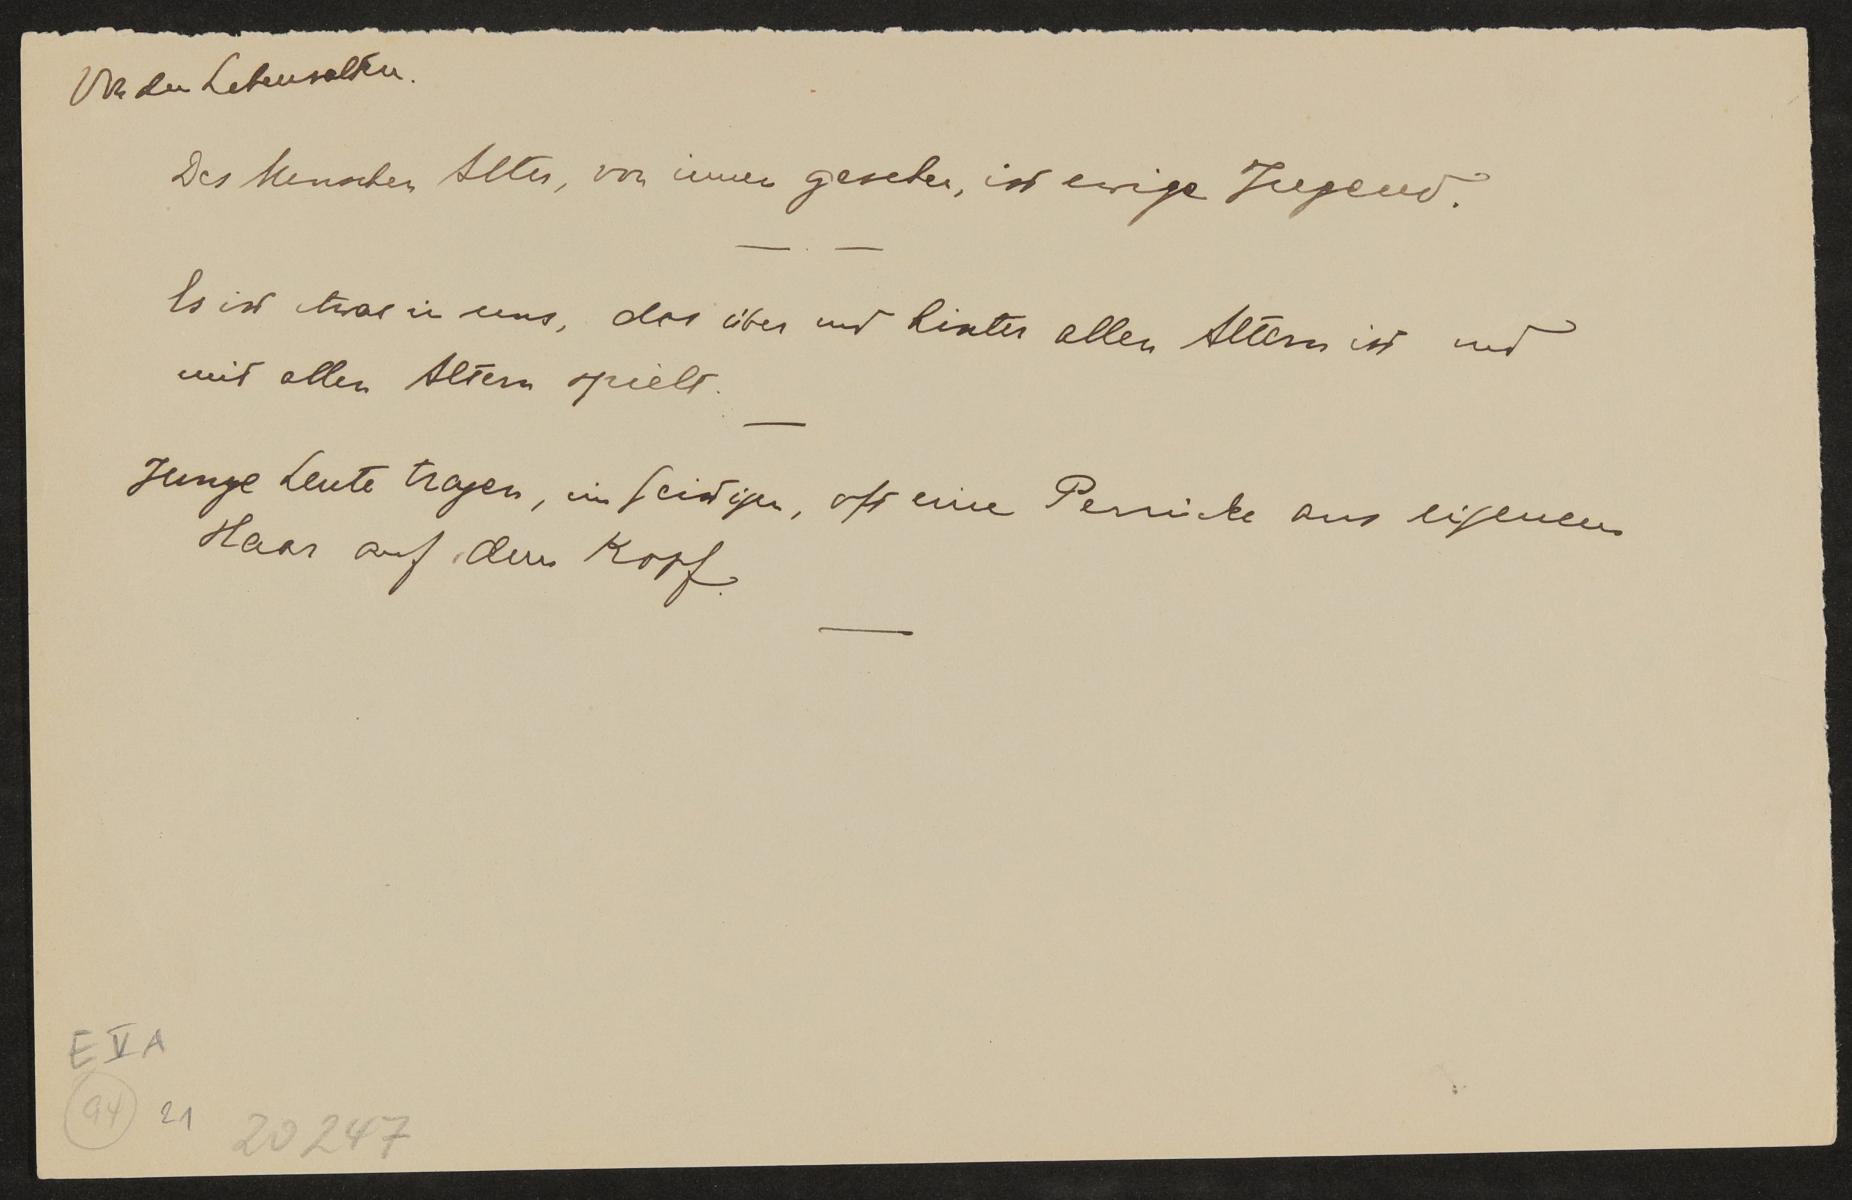 Von den Lebensaltern.
Des Menschen Alter, von innen gesehen, ist ewige Jugend.
Es ist etwas in uns, das über und hinter allen Altern ist und
mit allen Altern spielt.
Junge Leute tragen, im Geistigen, oft eine Perrücke aus eigenem
Haar auf dem Kopf.
E V A
94 21 20247